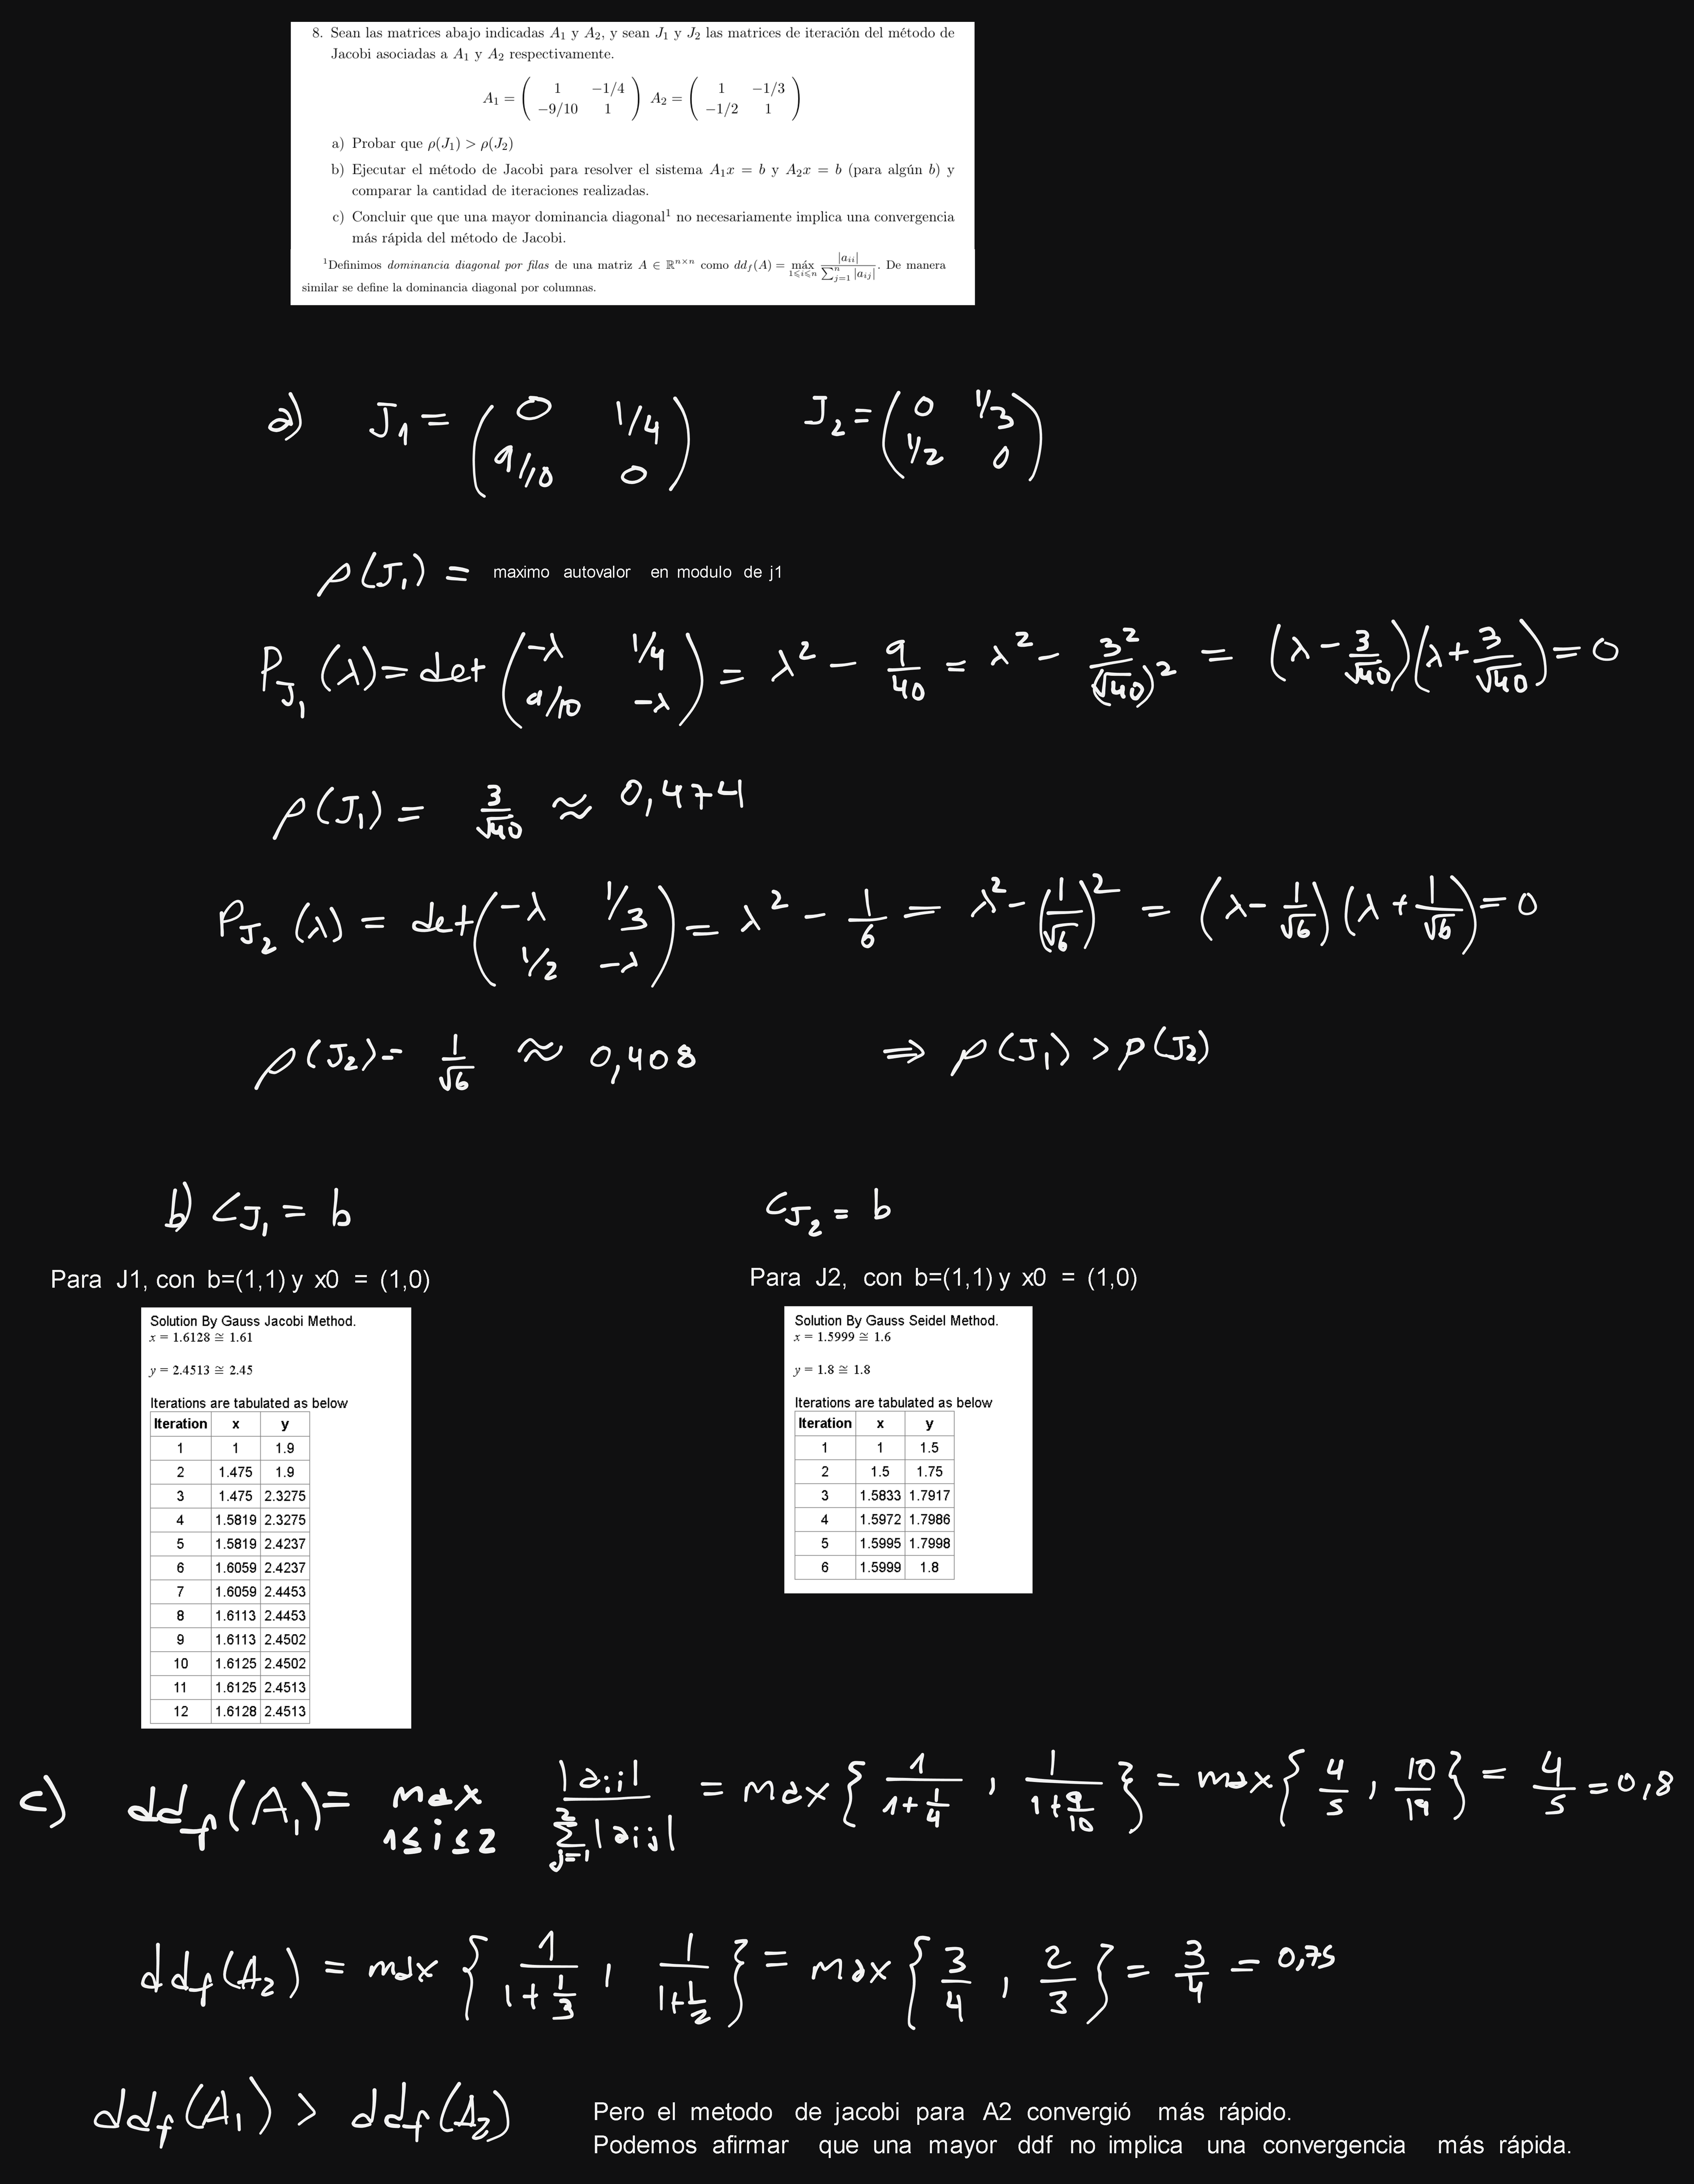 8. Sean las matrices abajo indicadas A₁ y A₂, y sean J₁ y J₂ las matrices de iteración del método de
Jacobi asociadas a A₁ y A₂ respectivamente.
A₁ = ( 1 −1/4 ; −9/10 1 ) A₂ = ( 1 −1/3 ; −1/2 1 )
a) Probar que ρ(J₁) > ρ(J₂)
b) Ejecutar el método de Jacobi para resolver el sistema A₁x = b y A₂x = b (para algún b) y
comparar la cantidad de iteraciones realizadas.
c) Concluir que que una mayor dominancia diagonal¹ no necesariamente implica una convergencia
más rápida del método de Jacobi.
¹Definimos dominancia diagonal por filas de una matriz A ∈ ℝⁿˣⁿ como dd_f(A) = máx_{1⩽i⩽n} |a_ii| / ∑_{j=1}^n |a_ij|. De manera
similar se define la dominancia diagonal por columnas.
a) J₁ = ( 0 1/4 ; 9/10 0 ) J₂ = ( 0 1/3 ; 1/2 0 )
ρ(J₁) = maximo autovalor en modulo de j1
P_J₁(λ) = det ( −λ 1/4 ; 9/10 −λ ) = λ² − 9/40 = λ² − 3²/(√40)² = (λ − 3/√40)(λ + 3/√40) = 0
ρ(J₁) = 3/√40 ≈ 0,474
P_J₂(λ) = det ( −λ 1/3 ; 1/2 −λ ) = λ² − 1/6 = λ² − (1/√6)² = (λ − 1/√6)(λ + 1/√6) = 0
ρ(J₂) = 1/√6 ≈ 0,408 ⇒ ρ(J₁) > ρ(J₂)
b) C_J₁ = b C_J₂ = b
Para J1, con b=(1,1) y x0 = (1,0)
Solution By Gauss Jacobi Method.
x = 1.6128 ≅ 1.61
y = 2.4513 ≅ 2.45
Iterations are tabulated as below
Iteration x y
1 1 1.9
2 1.475 1.9
3 1.475 2.3275
4 1.5819 2.3275
5 1.5819 2.4237
6 1.6059 2.4237
7 1.6059 2.4453
8 1.6113 2.4453
9 1.6113 2.4502
10 1.6125 2.4502
11 1.6125 2.4513
12 1.6128 2.4513
Para J2, con b=(1,1) y x0 = (1,0)
Solution By Gauss Seidel Method.
x = 1.5999 ≅ 1.6
y = 1.8 ≅ 1.8
Iterations are tabulated as below
Iteration x y
1 1 1.5
2 1.5 1.75
3 1.5833 1.7917
4 1.5972 1.7986
5 1.5995 1.7998
6 1.5999 1.8
c) dd_f(A₁) = max_{1≤i≤2} |a_ii| / ∑_{j=1}^2 |a_ij| = max { 1/(1+1/4) , 1/(1+9/10) } = max { 4/5 , 10/19 } = 4/5 = 0,8
dd_f(A₂) = max { 1/(1+1/3) , 1/(1+1/2) } = max { 3/4 , 2/3 } = 3/4 = 0,75
dd_f(A₁) > dd_f(A₂) Pero el metodo de jacobi para A2 convergió más rápido.
Podemos afirmar que una mayor ddf no implica una convergencia más rápida.